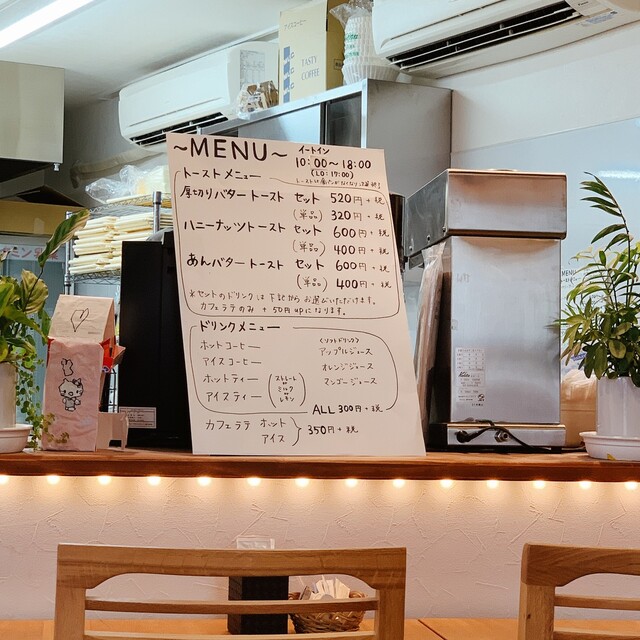 アイスコーヒー
TASTY
COFFEE
~MENU~
イートイン
10:00~18:00
(LO:17:00)
トーストメニュー
厚切りバタートースト セット 520円+税
(単品) 320円+税
ハニーナッツトースト セット 600円+税
(単品) 400円+税
あんバタートースト セット 600円+税
(単品) 400円+税
*セットのドリンクは下記からお選びいただけます。
カフェラテのみ +50円upになります。
ドリンクメニュー
ホットコーヒー
アイスコーヒー
ホットティー
アイスティー
(ストレート
ミルク
レモン)
<ソフトドリンク>
アップルジュース
オレンジジュース
マンゴージュース
ALL 300円+税
カフェラテ ホット
アイス
350円+税
MENU